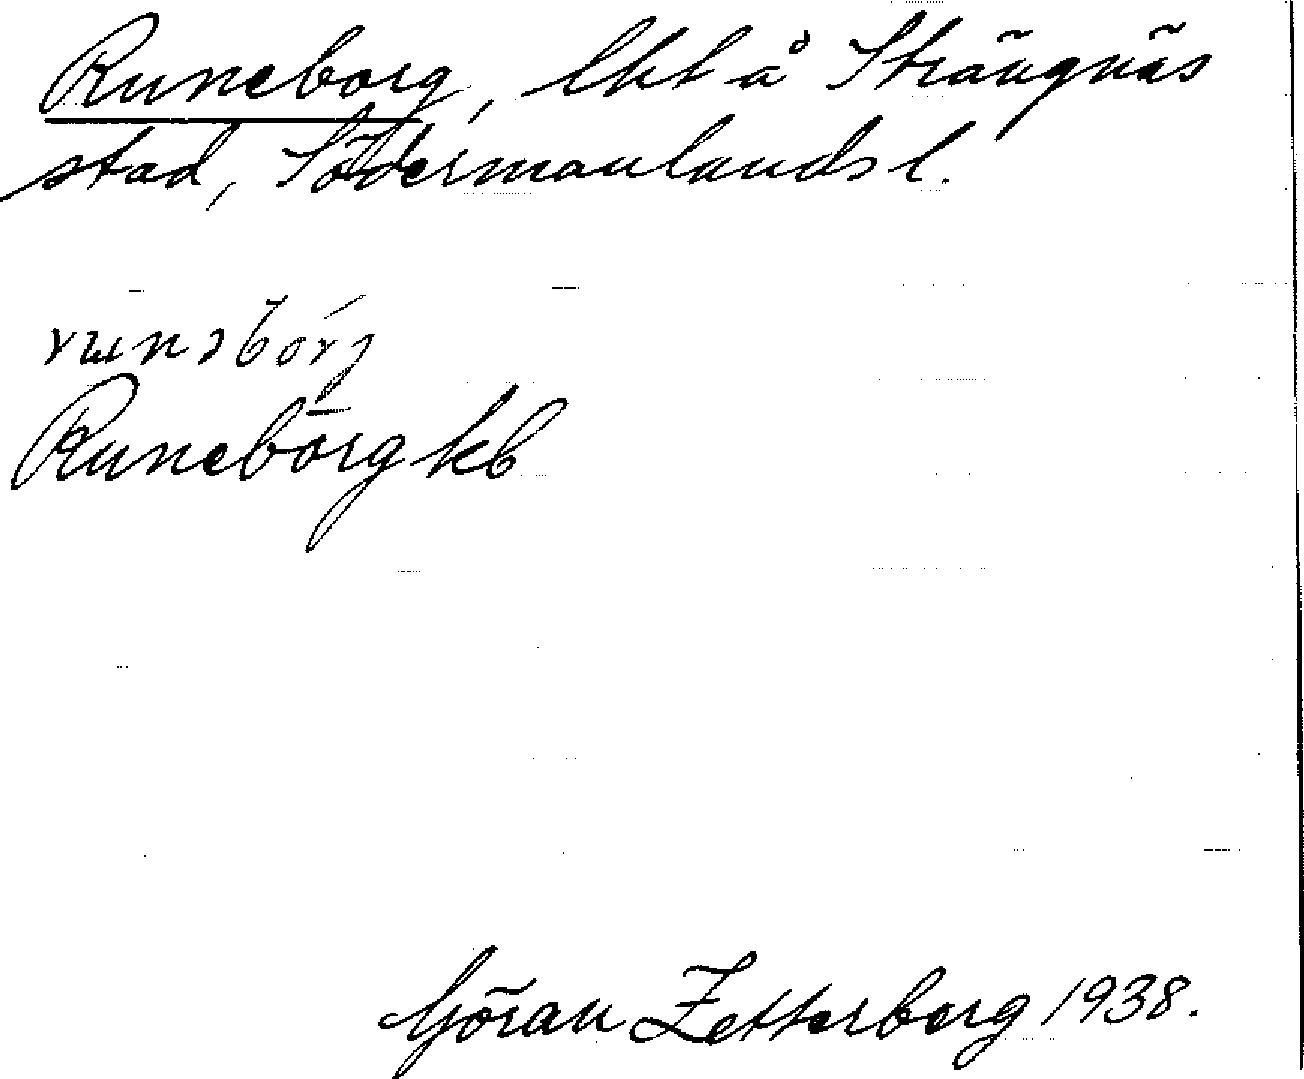 Runeborg, lht å Strängnäs
stad, Södermanlands l.
Runeborg kb
Göran Zetterberg 1938.